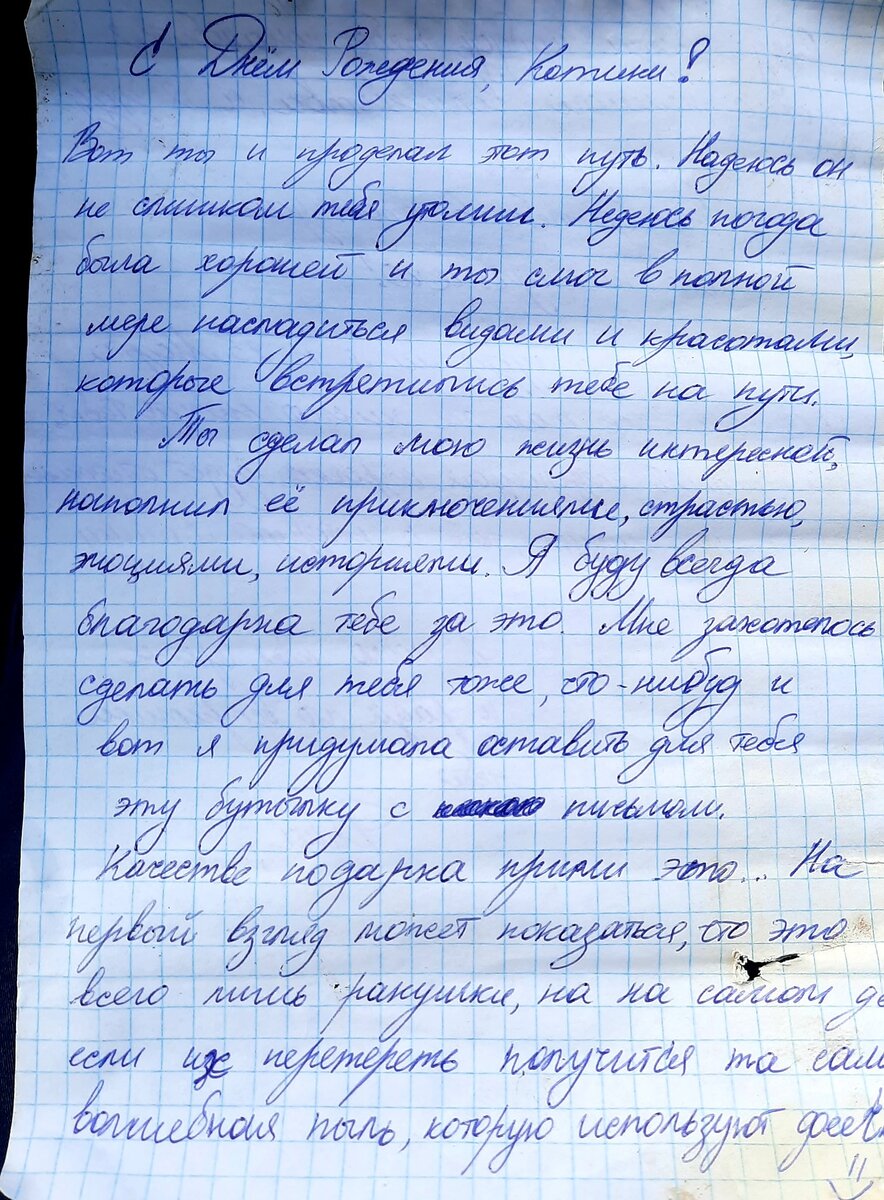 С Днём Рождения, Котики!
Вот ты и проделал этот путь. Надеюсь он
не слишком тебя утомил. Надеюсь погода
была хорошей и ты смог в полной
мере насладиться видами и красотами,
которые встретились тебе на пути.
Ты сделал мою жизнь интересной,
наполнил её приключениями, страстью,
эмоциями, историями. Я буду всегда
благодарна тебе за это. Мне захотелось
сделать для тебя тоже, что-нибуд и
вот я придумала оставить для тебя
эту бутылку с письмом.
Качестве подарка прими это... На
первый взгляд может показаться, что это
всего лишь ракушки, на на самом де
если их перетереть получится та сам
волшебная пыль, которую используют